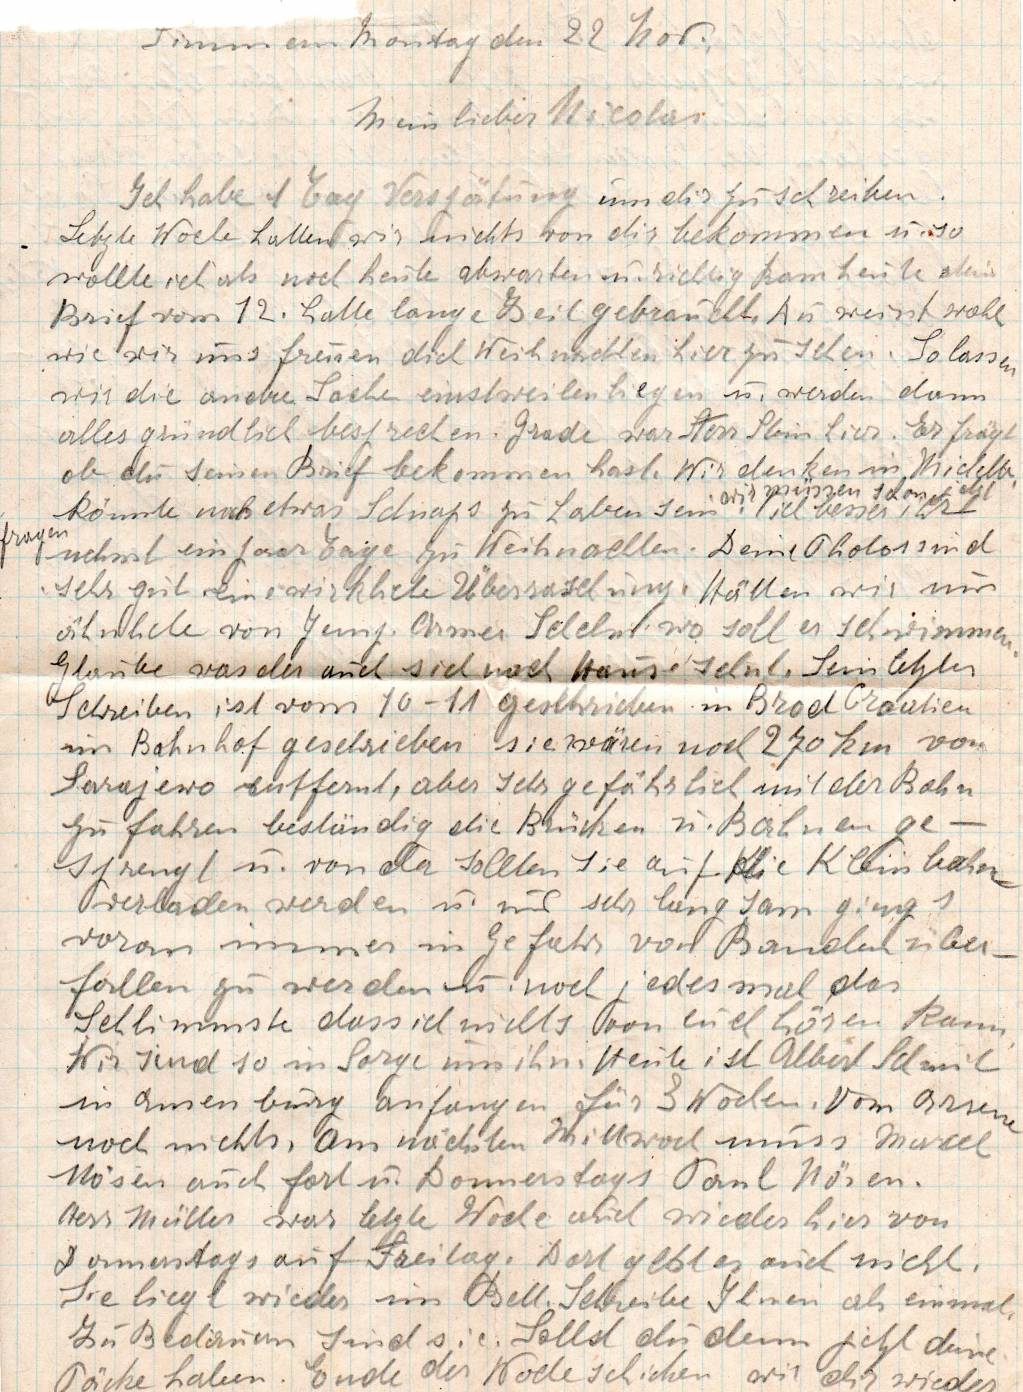 Montag den 22 Nov.
Mein lieber Nicolas
Ich habe 1 Tag Verspätung um dir zu schreiben.
Letzte Woche hatten wir nichts von dir bekommen u. so
wollte ich als noch heute abwarten u. richtig kam heute dein
Brief vom 12. hatte lange Zeit gebraucht. Du weisst wohl
wie wir uns freuen dich Weihnachten hier zu sehen. So lassen
wir die andre Sache einstweilen liegen u. werden dann
alles gründlich besprechen. Grade war Herr Stein hier. Er frägt
ob du seinen Brief bekommen hast. Wir denken in
könnte noch etwas Schnaps zu haben sein wir müssen schon jetzt
fragen
nehmt ein paar Tage zu Weihnachten. Deine Photos sind
sehr gut eine wirkliche Überraschung. Hätten wir nur
ähnliche von Jemp. Armer Schelm wo soll er schwimmen.
Glaube dass der auch sich nach Hause sehnt. Sein letztes
Schreiben ist vom 10-11 geschrieben in Brod Croatien
im Bahnhof geschrieben sie wären noch 270 km von
Sarajewo entfernt, aber sehr gefährlich mit der Bahn
zu fahren beständig die Brücken u. Bahnen ge-
sprengt u. von da sollten sie auf die Kleinbahn
verladen werden u. nur sehr langsam gings
voran immer in Gefahr von Banden über-
fallen zu werden u. noch jedesmal das
Schlimmste dass ich nichts von euch hören kann,
Wir sind so in Sorge um ihn. Heute ist Albert Schmit
in anfangen für 3 Wochen. Vom Arsene
noch nichts. Am nächsten Mittwoch muss Marcel
Mösen auch fort u. Donnerstags Paul Nösen.
Herr Müller war letzte Woche auch wieder hier von
Donnerstags auf Freitag. Dort geht es auch nicht.
Sie liegt wieder im Bett. Schreibe Ihnen als einmal.
Zu Bedauern sind sie. Sollst du denn jetzt deine
Päcke haben. Ende der Woche schicken wir dir wieder